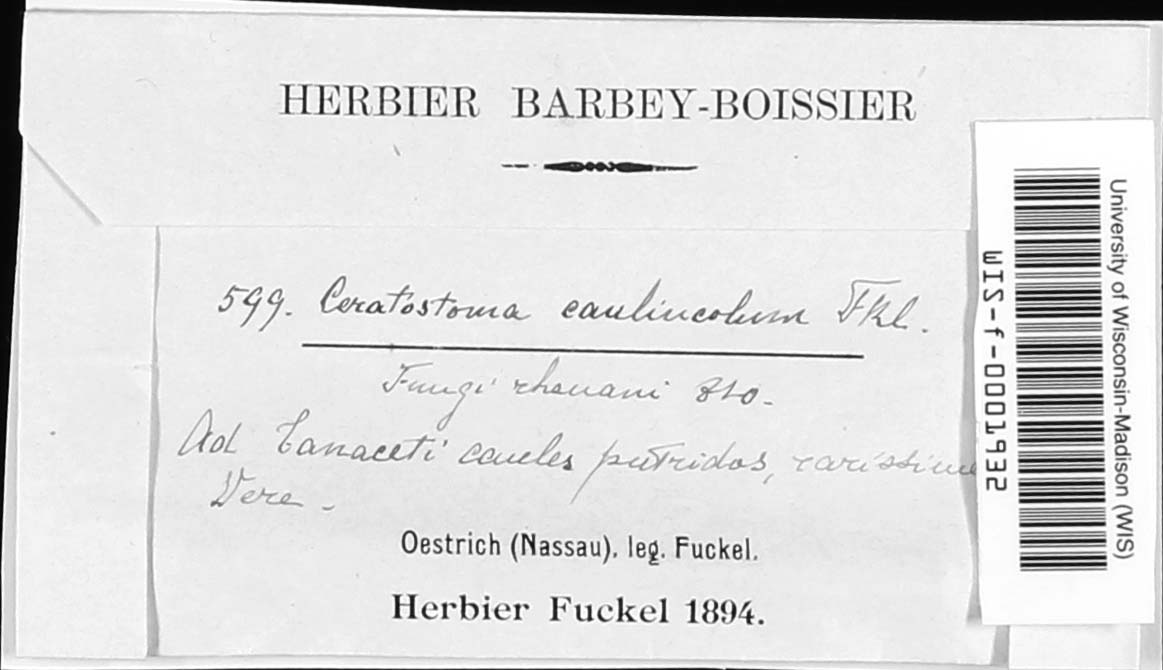 HERBIER BARBEY-BOISSIER
599. Ceratostoma caulincolum Fkl.
Fungi rhenani 810.
Ad Tanaceti caules putridos, rarissime
Vere.
Oestrich (Nassau). leg. Fuckel.
Herbier Fuckel 1894.
WIS-f-0001932
University of Wisconsin-Madison (WIS)